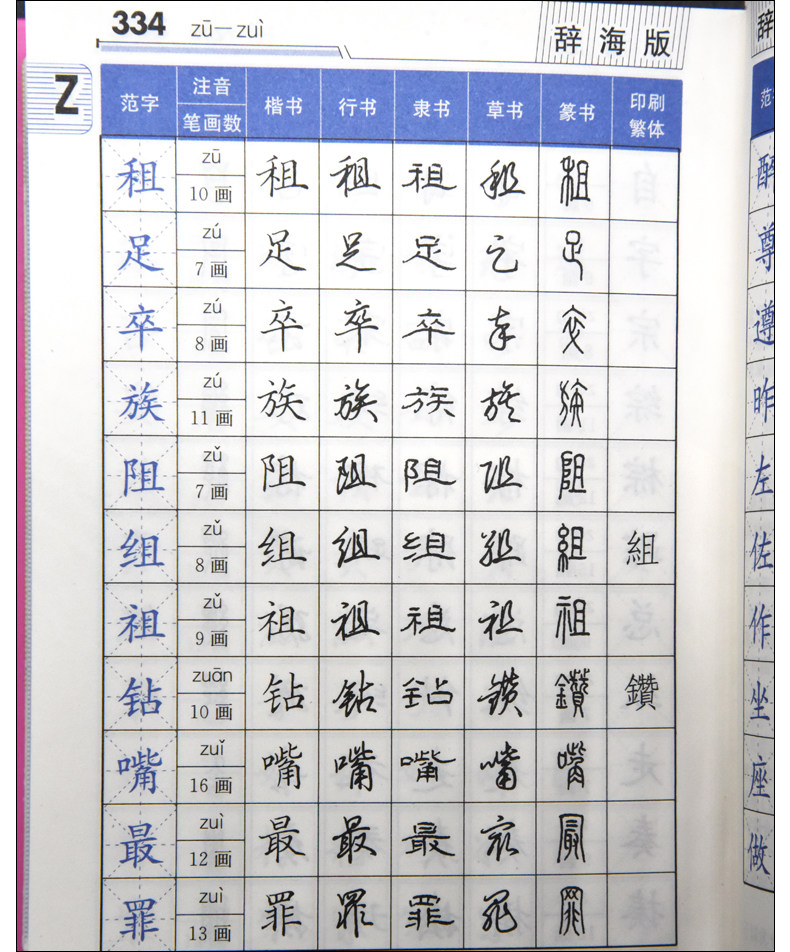 334 zū—zuì
辞海版
Z
范字 注音 笔画数 楷书 行书 隶书 草书 篆书 印刷繁体
租 zū 10画 租 租 租 租 租
足 zú 7画 足 足 足 足 足
卒 zú 8画 卒 卒 卒 卒 卒
族 zú 11画 族 族 族 族 族
阻 zǔ 7画 阻 阻 阻 阻 阻
组 zǔ 8画 组 组 组 组 組 組
祖 zǔ 9画 祖 祖 祖 祖 祖
钻 zuān 10画 钻 钻 钻 鑽 鑽 鑽
嘴 zuǐ 16画 嘴 嘴 嘴 嘴 嘴
最 zuì 12画 最 最 最 最 最
罪 zuì 13画 罪 罪 罪 罪 罪
辞
范
醉
尊
遵
昨
左
佐
作
坐
座
做